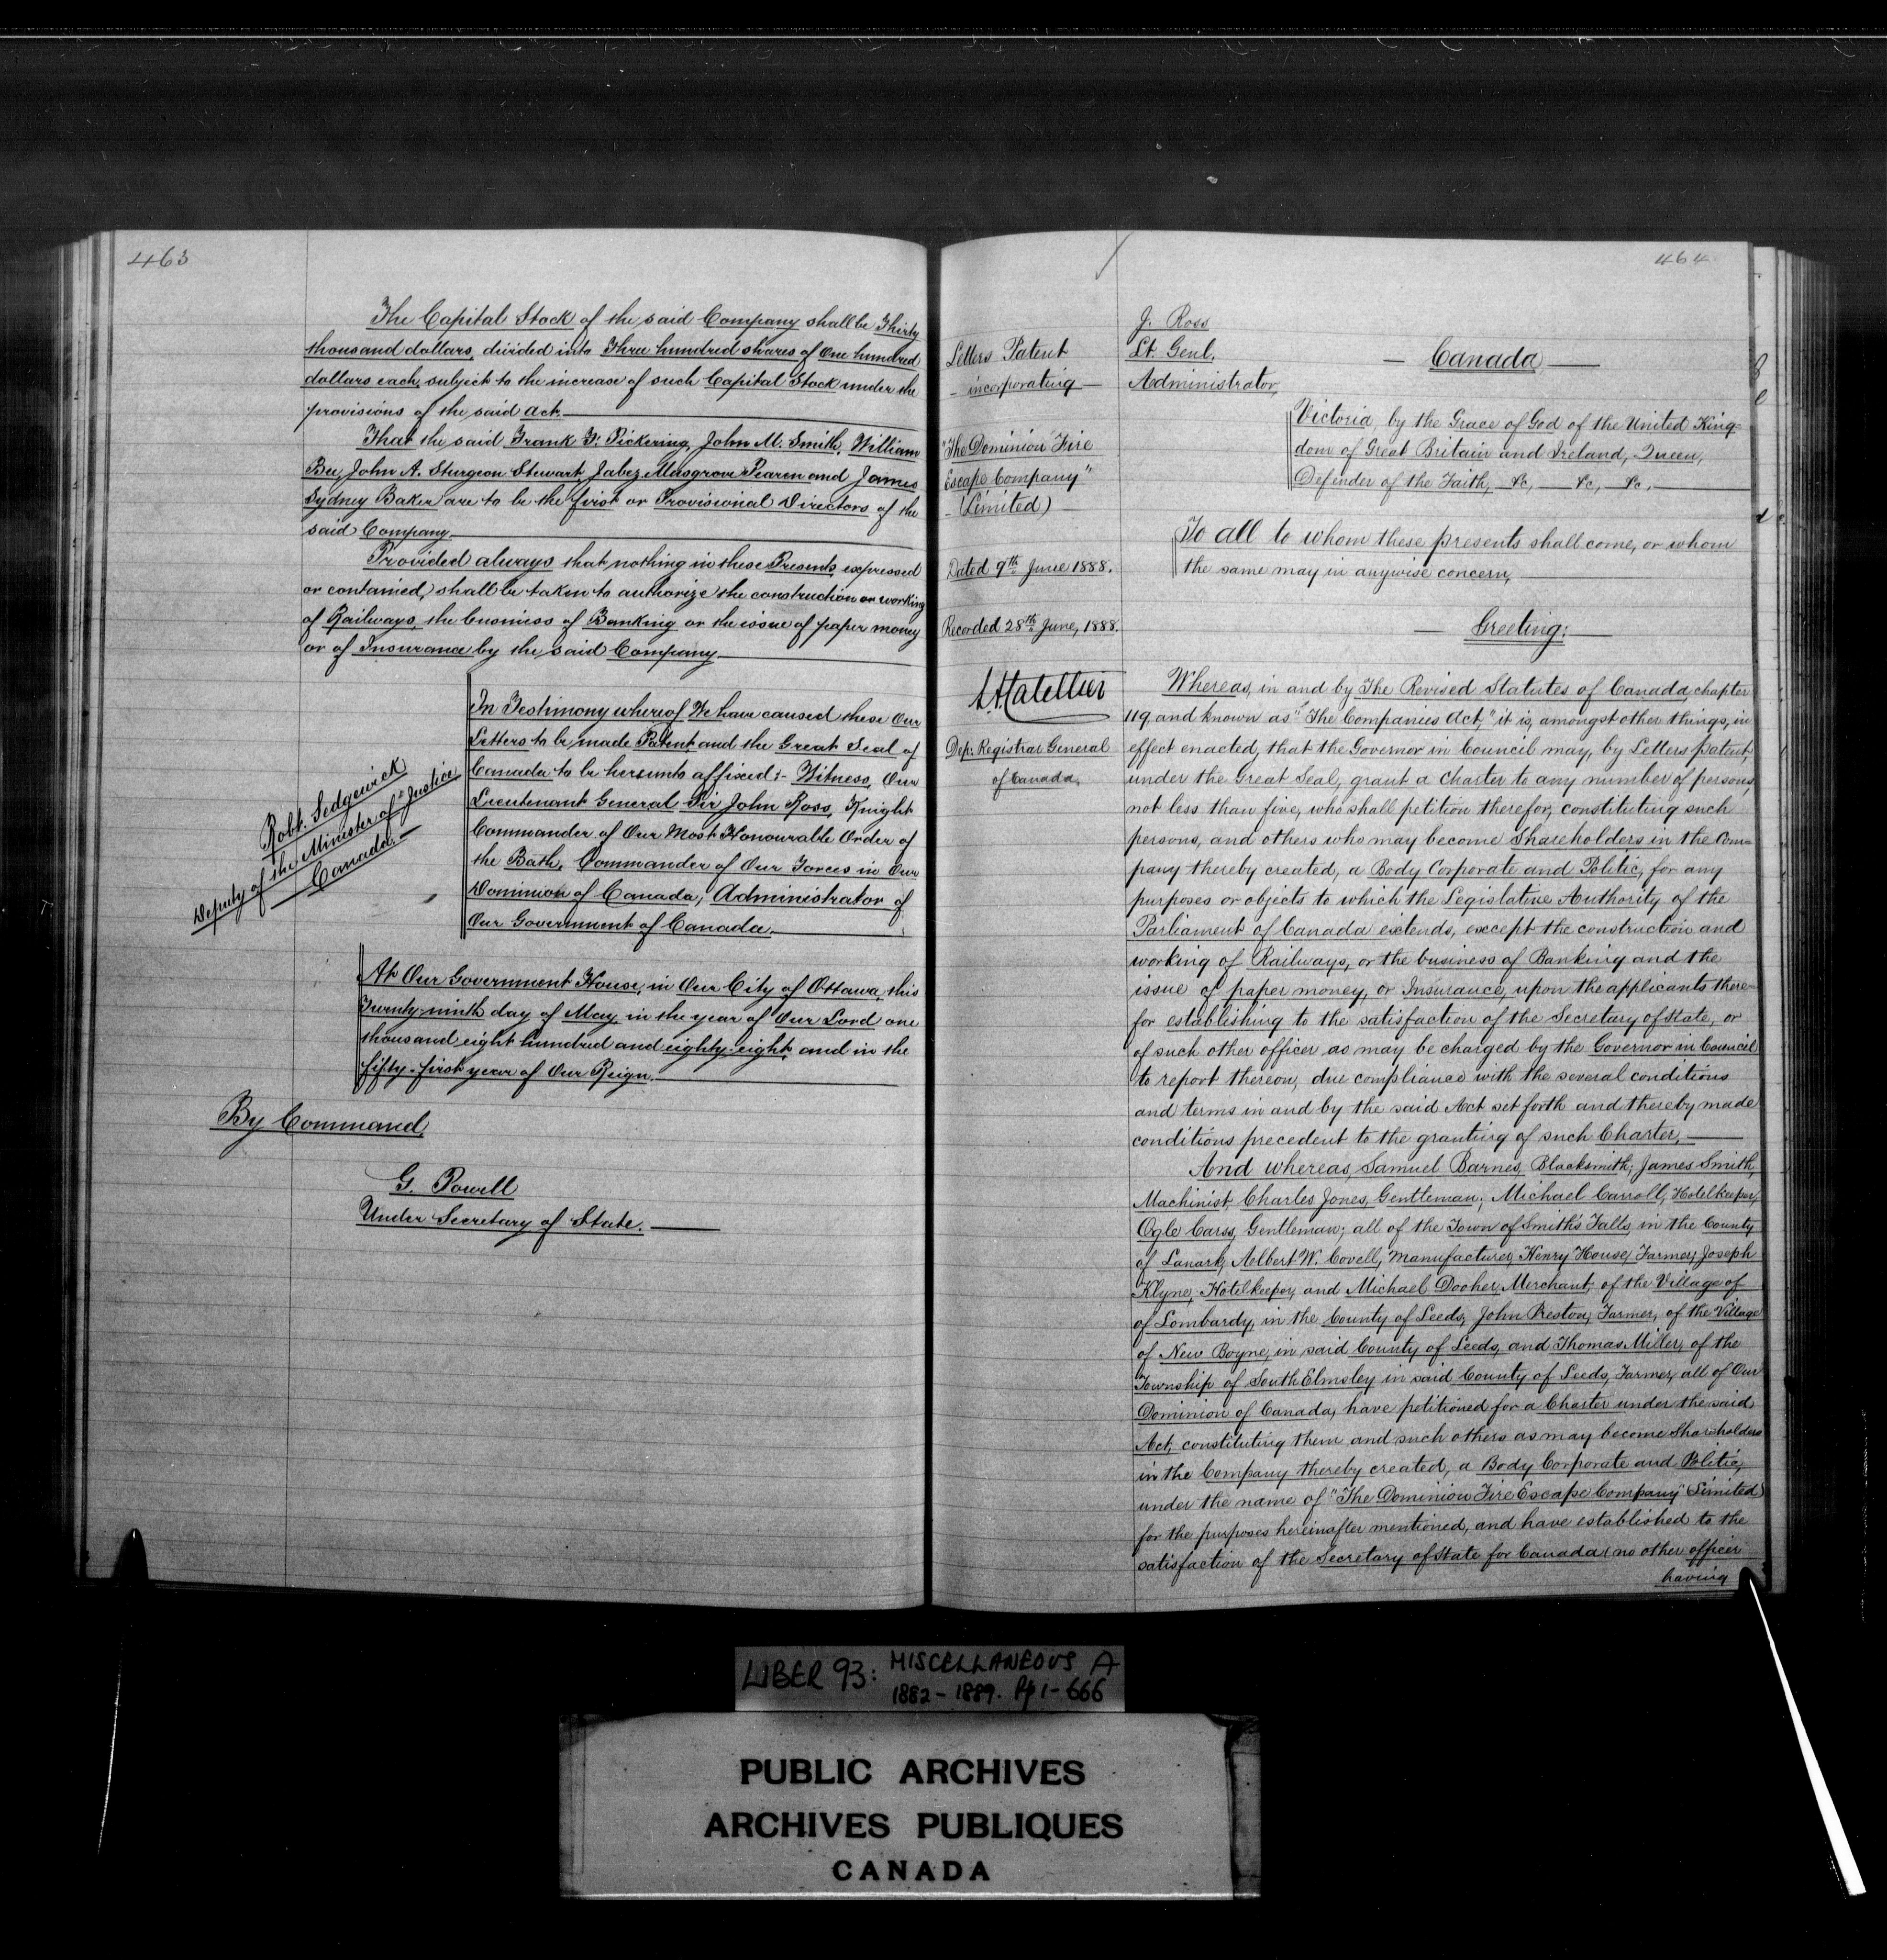 463
The Capital Stock of the said Company shall be Thirty
thousand dollars, divided into Three hundred shares of One hundred
dollars each, subject to the increase of such Capital Stock under the
provisions of the said Act.
That the said Frank F. Pickering, John M. Smith, William
Bee, John A. Sturgeon Stewart, Jabez Musgrove Pearen and James
Sydney Baker are to be the first or Provisional Directors of the
said Company.
Provided always that nothing in these Presents expressed
or contained, shall be taken to authorize the construction or working
of Railways, the business of Banking or the issue of paper money
or of Insurance by the said Company.
In Testimony whereof We have caused these Our
Letters to be made Patent and the Great Seal of
Canada to be hereunto affixed:- Witness, Our
Lieutenant General Sir John Ross, Knight
Commander of Our Most Honourable Order of
the Bath, Commander of Our Forces in Our
Dominion of Canada, Administrator of
Our Government of Canada.
Robt. Sedgewick
Deputy of the Minister of Justice
Canada.
At Our Government House, in Our City of Ottawa, this
Twenty-ninth day of May in the year of Our Lord one
thousand eight hundred and eighty-eight and in the
fifty-first year of Our Reign.
By Command,
G. Powell
Under Secretary of State.
464
Letters Patent
- incorporating -
"The Dominion Fire
Escape Company"
- (Limited) -
Dated 9th June 1888.
Recorded 28th June, 1888.
Dep: Registrar General
of Canada.
J. Ross
Lt. Genl.
Administrator,
- Canada -
Victoria, by the Grace of God of the United King-
dom of Great Britain and Ireland, Queen,
Defender of the Faith, &c, - &c, - &c. -
To all to whom these presents shall come, or whom
the same may in anywise concern,
- Greeting: -
Whereas, in and by The Revised Statutes of Canada, chapter
119, and known as "The Companies Act," it is, amongst other things, in
effect enacted, that the Governor in Council may, by Letters patent,
under the Great Seal, grant a charter to any number of persons,
not less than five, who shall petition therefor, constituting such
persons, and others who may become Shareholders in the Com-
pany thereby created, a Body Corporate and Politic, for any
purposes or objects to which the Legislative Authority of the
Parliament of Canada extends, except the construction and
working of Railways, or the business of Banking and the
issue of paper money, or Insurance, upon the applicants there-
for establishing to the satisfaction of the Secretary of State, or
of such other officer as may be charged by the Governor in Council
to report thereon, due compliance with the several conditions
and terms in and by the said Act set forth and thereby made
conditions precedent to the granting of such Charter, -
And whereas, Samuel Barnes, Blacksmith; James Smith,
Machinist, Charles Jones, Gentleman; Michael Carroll, Hotelkeeper,
Ogle Carss, Gentleman; all of the Town of Smith's Falls, in the County
of Lanark, Albert W. Covell, Manufacturer, Henry House, Farmer, Joseph
Klyne, Hotelkeeper, and Michael Dooher, Merchant, of the Village of
of Lombardy, in the County of Leeds, John Preston, Farmer, of the Village
of New Boyne, in said County of Leeds, and Thomas Miller, of the
Township of South Elmsley in said County of Leeds, Farmer, all of Our
Dominion of Canada, have petitioned for a Charter under the said
Act, constituting them and such others as may become Shareholders
in the Company thereby created, a Body Corporate and Politic,
under the name of "The Dominion Fire Escape Company" (Limited)
for the purposes hereinafter mentioned, and have established to the
satisfaction of the Secretary of State for Canada (no other officer
having
LIBER 93: MISCELLANEOUS A
1882-1889. Pp 1-666
PUBLIC ARCHIVES
ARCHIVES PUBLIQUES
CANADA